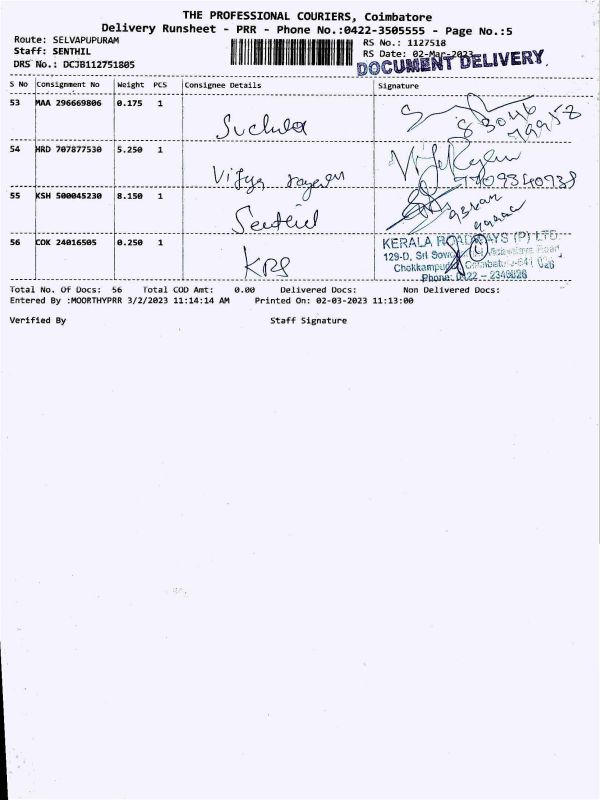 THE PROFESSIONAL COURIERS, Coimbatore
Delivery Runsheet - PRR - Phone No.:0422-3505555 - Page No.:5
Route: SELVAPUPURAM
RS No.: 1127518
Staff: SENTHIL
RS Date: 02-Mar-2023
DRS No.: DCJB112751805
DOCUMENT DELIVERY
S No Consignment No Weight PCS Consignee Details Signature
53 MAA 296669806 0.175 1
Suchila
54 HRD 707877530 5.250 1
Vijya
55 KSH 500045230 8.150 1
Senthil
56 COK 24016505 0.250 1
KRS
KERALA ROADWAYS (P) LTD
129-D, Sri
Chokkampudur Coimbatore-641 026
Phone: 0422 - 2349828
Total No. Of Docs: 56 Total COD Amt: 0.00 Delivered Docs: Non Delivered Docs:
Entered By :MOORTHYPRR 3/2/2023 11:14:14 AM Printed On: 02-03-2023 11:13:00
Verified By Staff Signature